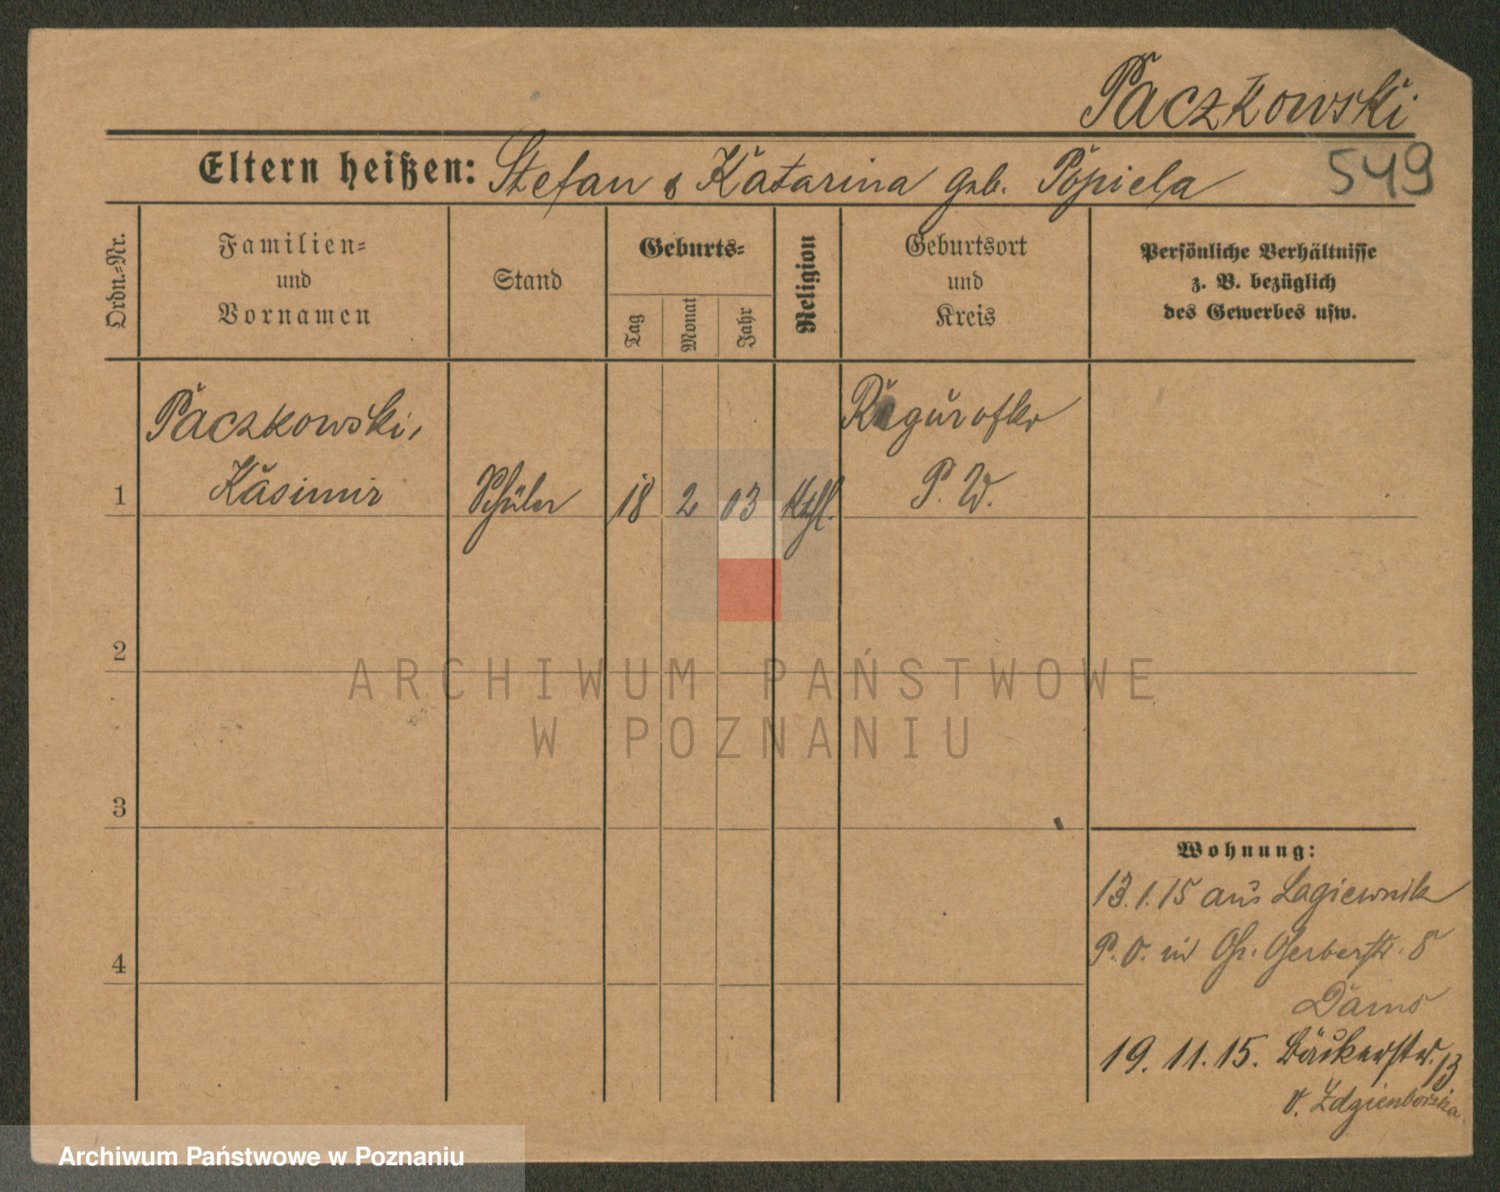 Paczkowski
Eltern heißen: Stefan & Katarina geb. Popiela 549
Ordn.=Nr.
Familien=
und
Vornamen
Stand
Geburts=
Tag
Monat
Jahr
Religion
Geburtsort
und
Kreis
Persönliche Verhältnisse
z. B. bezüglich
des Gewerbes usw.
Paczkowski,
1 Kasimir Schüler 18 2 03 kthl.
P. W.
2
3
4
Wohnung:
13.1.15 aus Lagiewnik
P. O. in Gr. Gerberstr. 8
19.11.15. Bäckerstr. 13
v.
ARCHIWUM PAŃSTWOWE
W POZNANIU
Archiwum Państwowe w Poznaniu